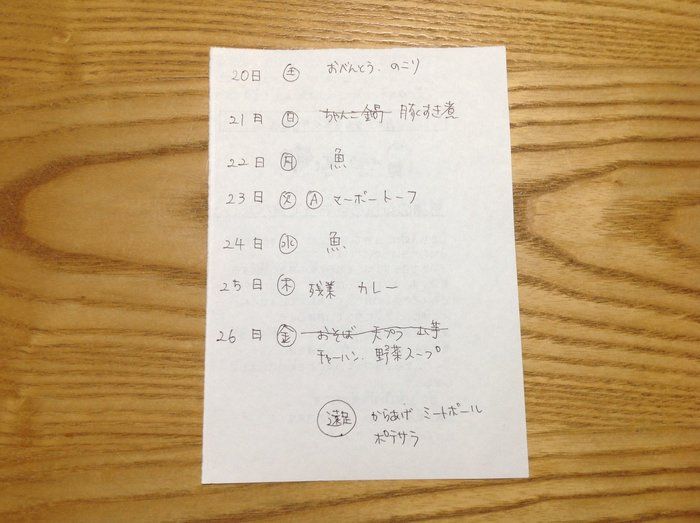 20日 ㊏ おべんとう. のこり
21日 ㊐ ちゃんこ鍋 豚くすき煮
22日 ㊊ 魚
23日 ㊋ Ⓐ マーボートーフ
24日 ㊌ 魚
25日 ㊍ 残業 カレー
26日 ㊎ おそば 天プラ 山芋
チャーハン. 野菜スープ
遠足 からあげ ミートボール
ポテサラ